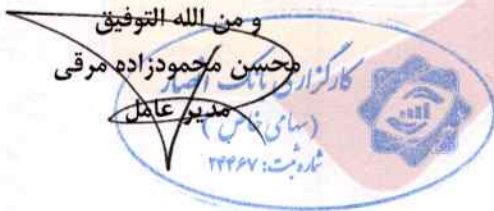 و من الله التوفیق
محسن محمودزاده مرقی
مدیر عامل
کارگزاری بانک انصار
(سهامی خاص)
شماره ثبت: ۲۴۴۶۷